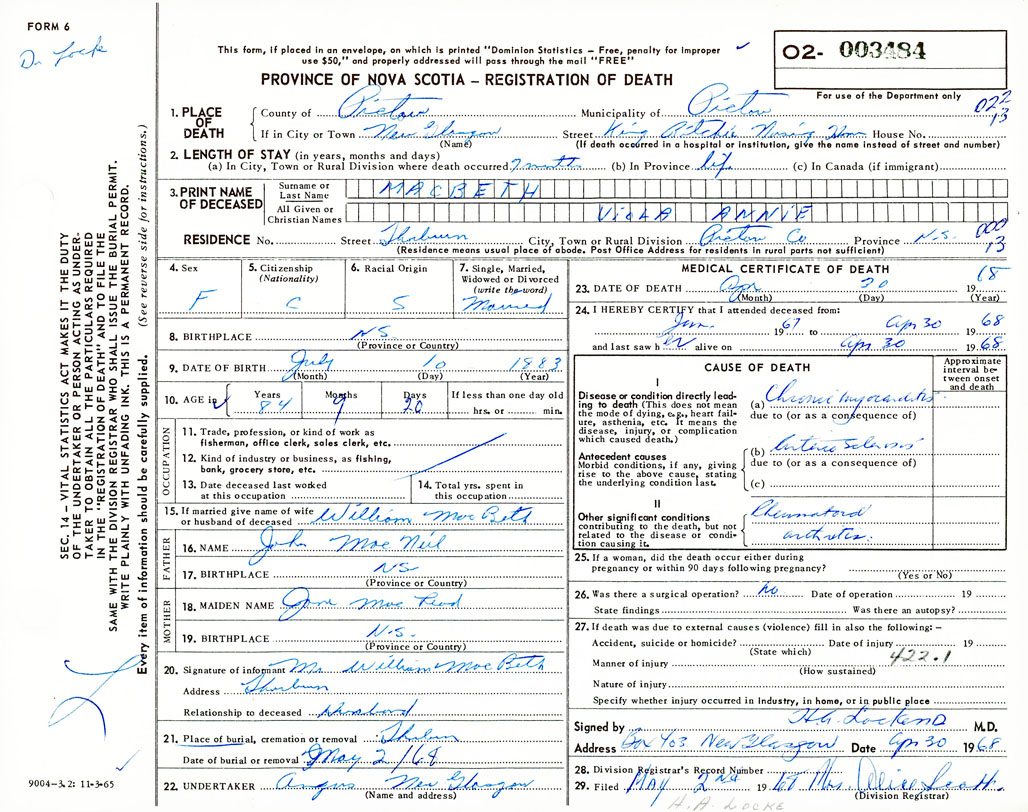 FORM 6
Dr Lock
This form, if placed in an envelope, on which is printed "Dominion Statistics – Free, penalty for improper
use $50," and properly addressed will pass through the mail "FREE"
PROVINCE OF NOVA SCOTIA – REGISTRATION OF DEATH
O2- 003484
For use of the Department only
022
13
1. PLACE OF DEATH
County of Pictou Municipality of Pictou
If in City or Town New Glasgow Street King Ritchie Nursing Home House No.
(Name) (If death occurred in a hospital or institution, give the name instead of street and number)
2. LENGTH OF STAY (in years, months and days)
(a) In City, Town or Rural Division where death occurred 7 months (b) In Province life (c) In Canada (if immigrant)
3. PRINT NAME OF DECEASED
Surname or Last Name MACBETH
All Given or Christian Names VIOLA ANNIE
RESIDENCE No. Street Thorburn City, Town or Rural Division Pictou Co Province N.S.
(Residence means usual place of abode. Post Office Address for residents in rural parts not sufficient)
000
13
4. Sex F
5. Citizenship (Nationality) C
6. Racial Origin S
7. Single, Married, Widowed or Divorced (write the word) Married
8. BIRTHPLACE N.S.
(Province or Country)
9. DATE OF BIRTH July 10 1883
(Month) (Day) (Year)
10. AGE in Years 84 Months 9 Days 20 If less than one day old hrs. or min.
OCCUPATION
11. Trade, profession, or kind of work as
fisherman, office clerk, sales clerk, etc.
12. Kind of industry or business, as fishing,
bank, grocery store, etc.
13. Date deceased last worked
at this occupation
14. Total yrs. spent in
this occupation
15. If married give name of wife
or husband of deceased William MacBeth
FATHER
16. NAME John MacNeil
17. BIRTHPLACE NS
(Province or Country)
MOTHER
18. MAIDEN NAME Jane Mac
19. BIRTHPLACE N.S.
(Province or Country)
20. Signature of informant Mr William MacBeth
Address Thorburn
Relationship to deceased Husband
21. Place of burial, cremation or removal Thorburn
Date of burial or removal May 2/68
22. UNDERTAKER Angus New Glasgow
(Name and address)
MEDICAL CERTIFICATE OF DEATH
23. DATE OF DEATH Apr 30 1968
(Month) (Day) (Year)
24. I HEREBY CERTIFY that I attended deceased from:
Jan. 1967 to Apr 30 1968
and last saw her alive on Apr 30 1968
CAUSE OF DEATH
Approximate interval between onset and death
I
Disease or condition directly leading to death (This does not mean the mode of dying, e.g., heart failure, asthenia, etc. It means the disease, injury, or complication which caused death.)
(a) Chronic myocarditis
due to (or as a consequence of)
Antecedent causes
Morbid conditions, if any, giving rise to the above cause, stating the underlying condition last.
(b) Arterio sclerosis
due to (or as a consequence of)
(c)
II
Other significant conditions contributing to the death, but not related to the disease or condition causing it.
Rheumatoid
arthritis.
25. If a woman, did the death occur either during
pregnancy or within 90 days following pregnancy?
(Yes or No)
26. Was there a surgical operation? no Date of operation 19
State findings Was there an autopsy?
27. If death was due to external causes (violence) fill in also the following: –
Accident, suicide or homicide? Date of injury 19
(State which)
422.1
Manner of injury
(How sustained)
Nature of injury
Specify whether injury occurred in Industry, in home, or in public place
Signed by H.A. Locke MD M.D.
Address Box 403 New Glasgow Date Apr 30 1968
28. Division Registrar's Record Number
29. Filed May 2nd 1968 Mrs. Alice Scott.
(Division Registrar)
H. A. LOCKE
SEC. 14 – VITAL STATISTICS ACT MAKES IT THE DUTY
OF THE UNDERTAKER OR PERSON ACTING AS UNDER-
TAKER TO OBTAIN ALL THE PARTICULARS REQUIRED
IN THE "REGISTRATION OF DEATH" AND TO FILE THE
SAME WITH THE DIVISION REGISTRAR WHO SHALL ISSUE THE BURIAL PERMIT.
WRITE PLAINLY WITH UNFADING INK. THIS IS A PERMANENT RECORD.
Every item of information should be carefully supplied. (See reverse side for instructions.)
9004-3.2: 11-3-65